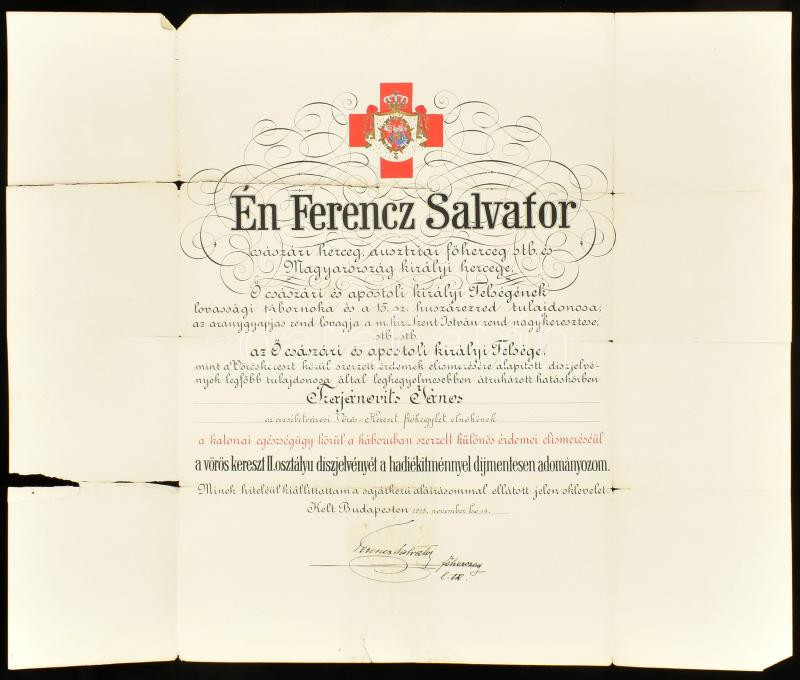 Én Ferencz Salvator
császári herceg, ausztriai főherceg stb. és
Magyarország királyi hercege,
Ő császári és apostoli királyi Felségének
lovassági tábornoka és a 15. sz. huszárezred tulajdonosa,
az aranygyapjas rend lovagja, a m. kir. Szent István rend nagykeresztese,
stb. stb.
az Ő császári és apostoli királyi Felsége,
mint a Vöröskereszt körül szerzett érdemek elismerésére alapitott diszjelvé-
nyek legfőbb tulajdonosa által legkegyelmesebben átruházott hatáskörben
Trajánovits János
az erzsébetvárosi Vörös-Kereszt fiókegylet elnökének
a katonai egészségügy körül a háboruban szerzett különös érdemei elismeréséül
a vörös kereszt II. osztályu diszjelvényét a hadiékitménnyel dijmentesen adományozom.
Minek hiteléül kiállittattam a sajátkezü aláirásommal ellátott jelen oklevelet.
Kelt Budapesten 1915. november hó 14.
Ferencz Salvator
főherceg